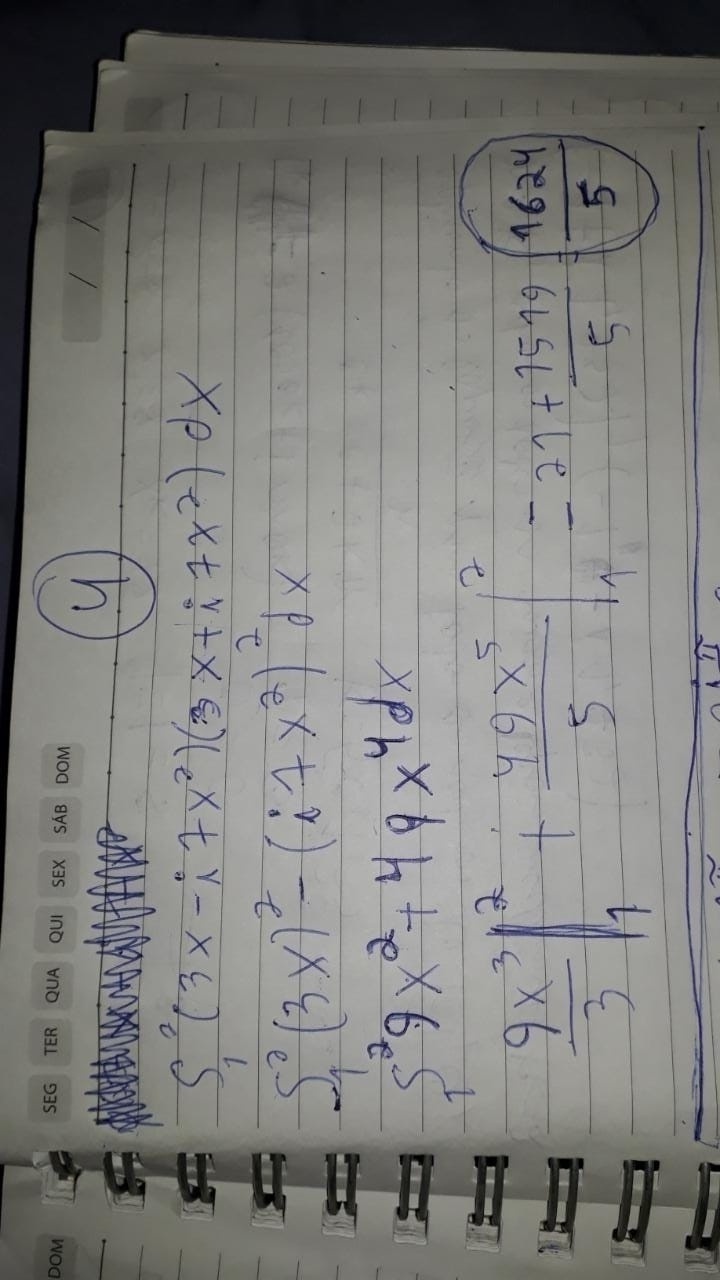 SEG TER QUA QUI SEX SÁB DOM / /
4
∫₁² (3x - i7x²)(3x + i7x²) dx
∫₁² (3x)² - (i7x²)² dx
∫₁² 9x² + 49x⁴ dx
9x³/3 + 49x⁵/5 |₁² = 21 + 1519/5 = 1624/5
DOM